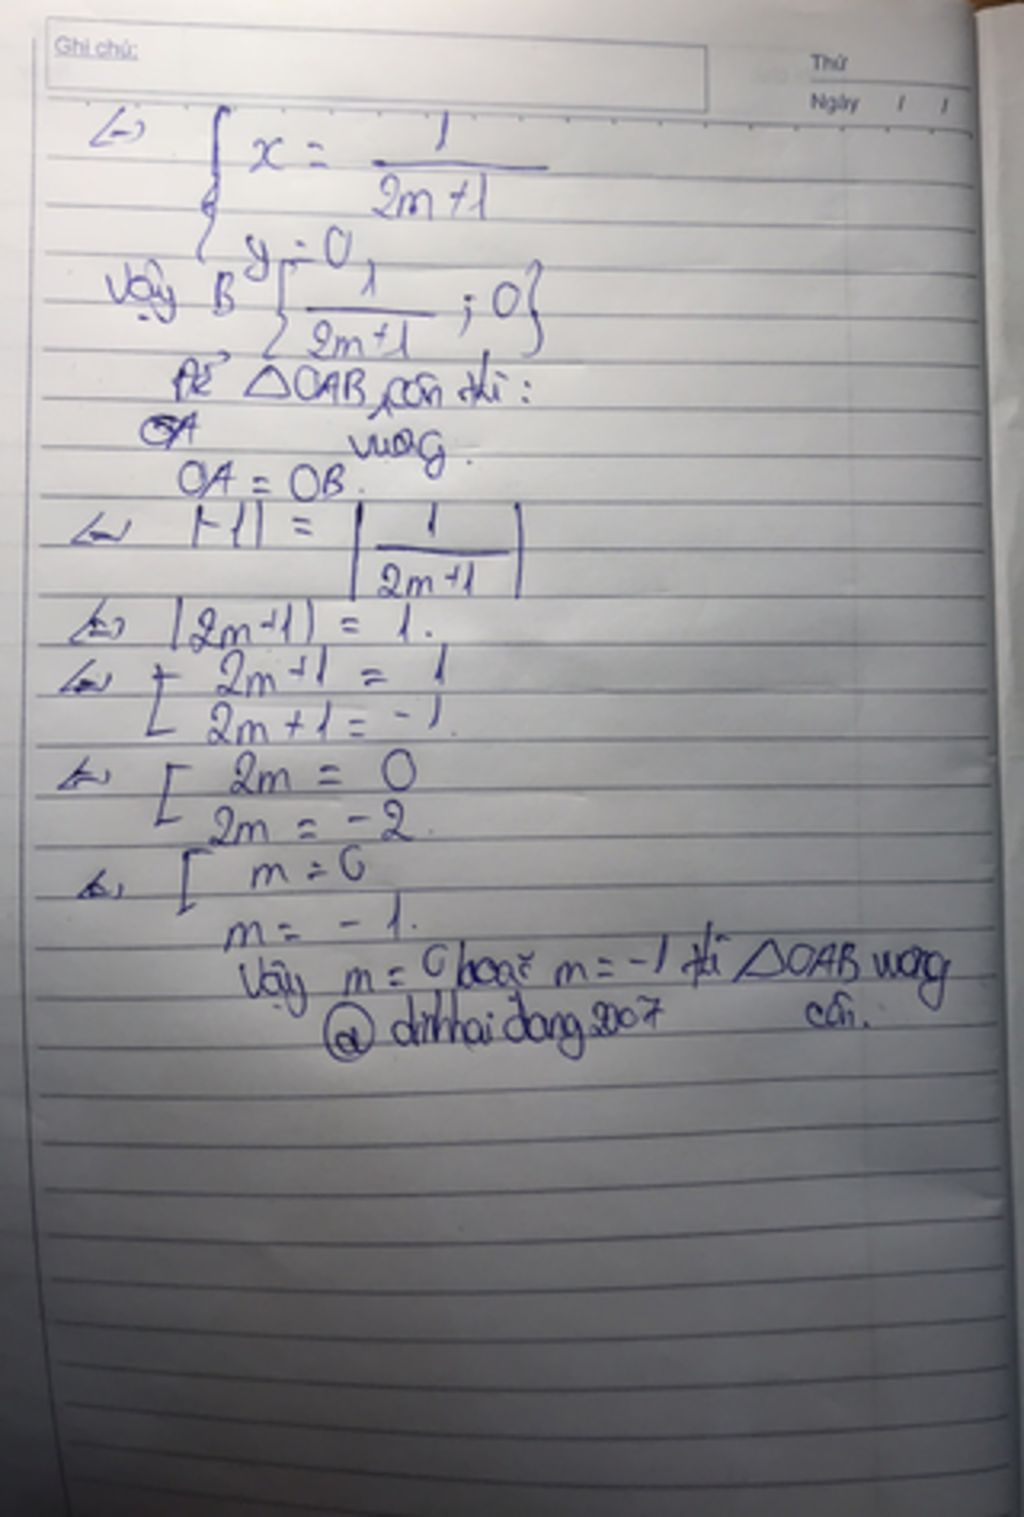 Ghi chú:
Thứ
Ngày / /
<=> { x = 1/(2m+1)
y = 0
Vậy B { 1/(2m+1) ; 0 }
Để △OAB cân thì:
OA vuong.
OA = OB.
<=> |-1| = |1/(2m+1)|
<=> |2m+1| = 1.
<=> [ 2m+1 = 1
2m+1 = -1.
<=> [ 2m = 0
2m = -2.
<=> [ m = 0
m = -1.
Vậy m = 0 hoặc m = -1 thì △OAB vuong
@ dinhhaidang2007 cân.